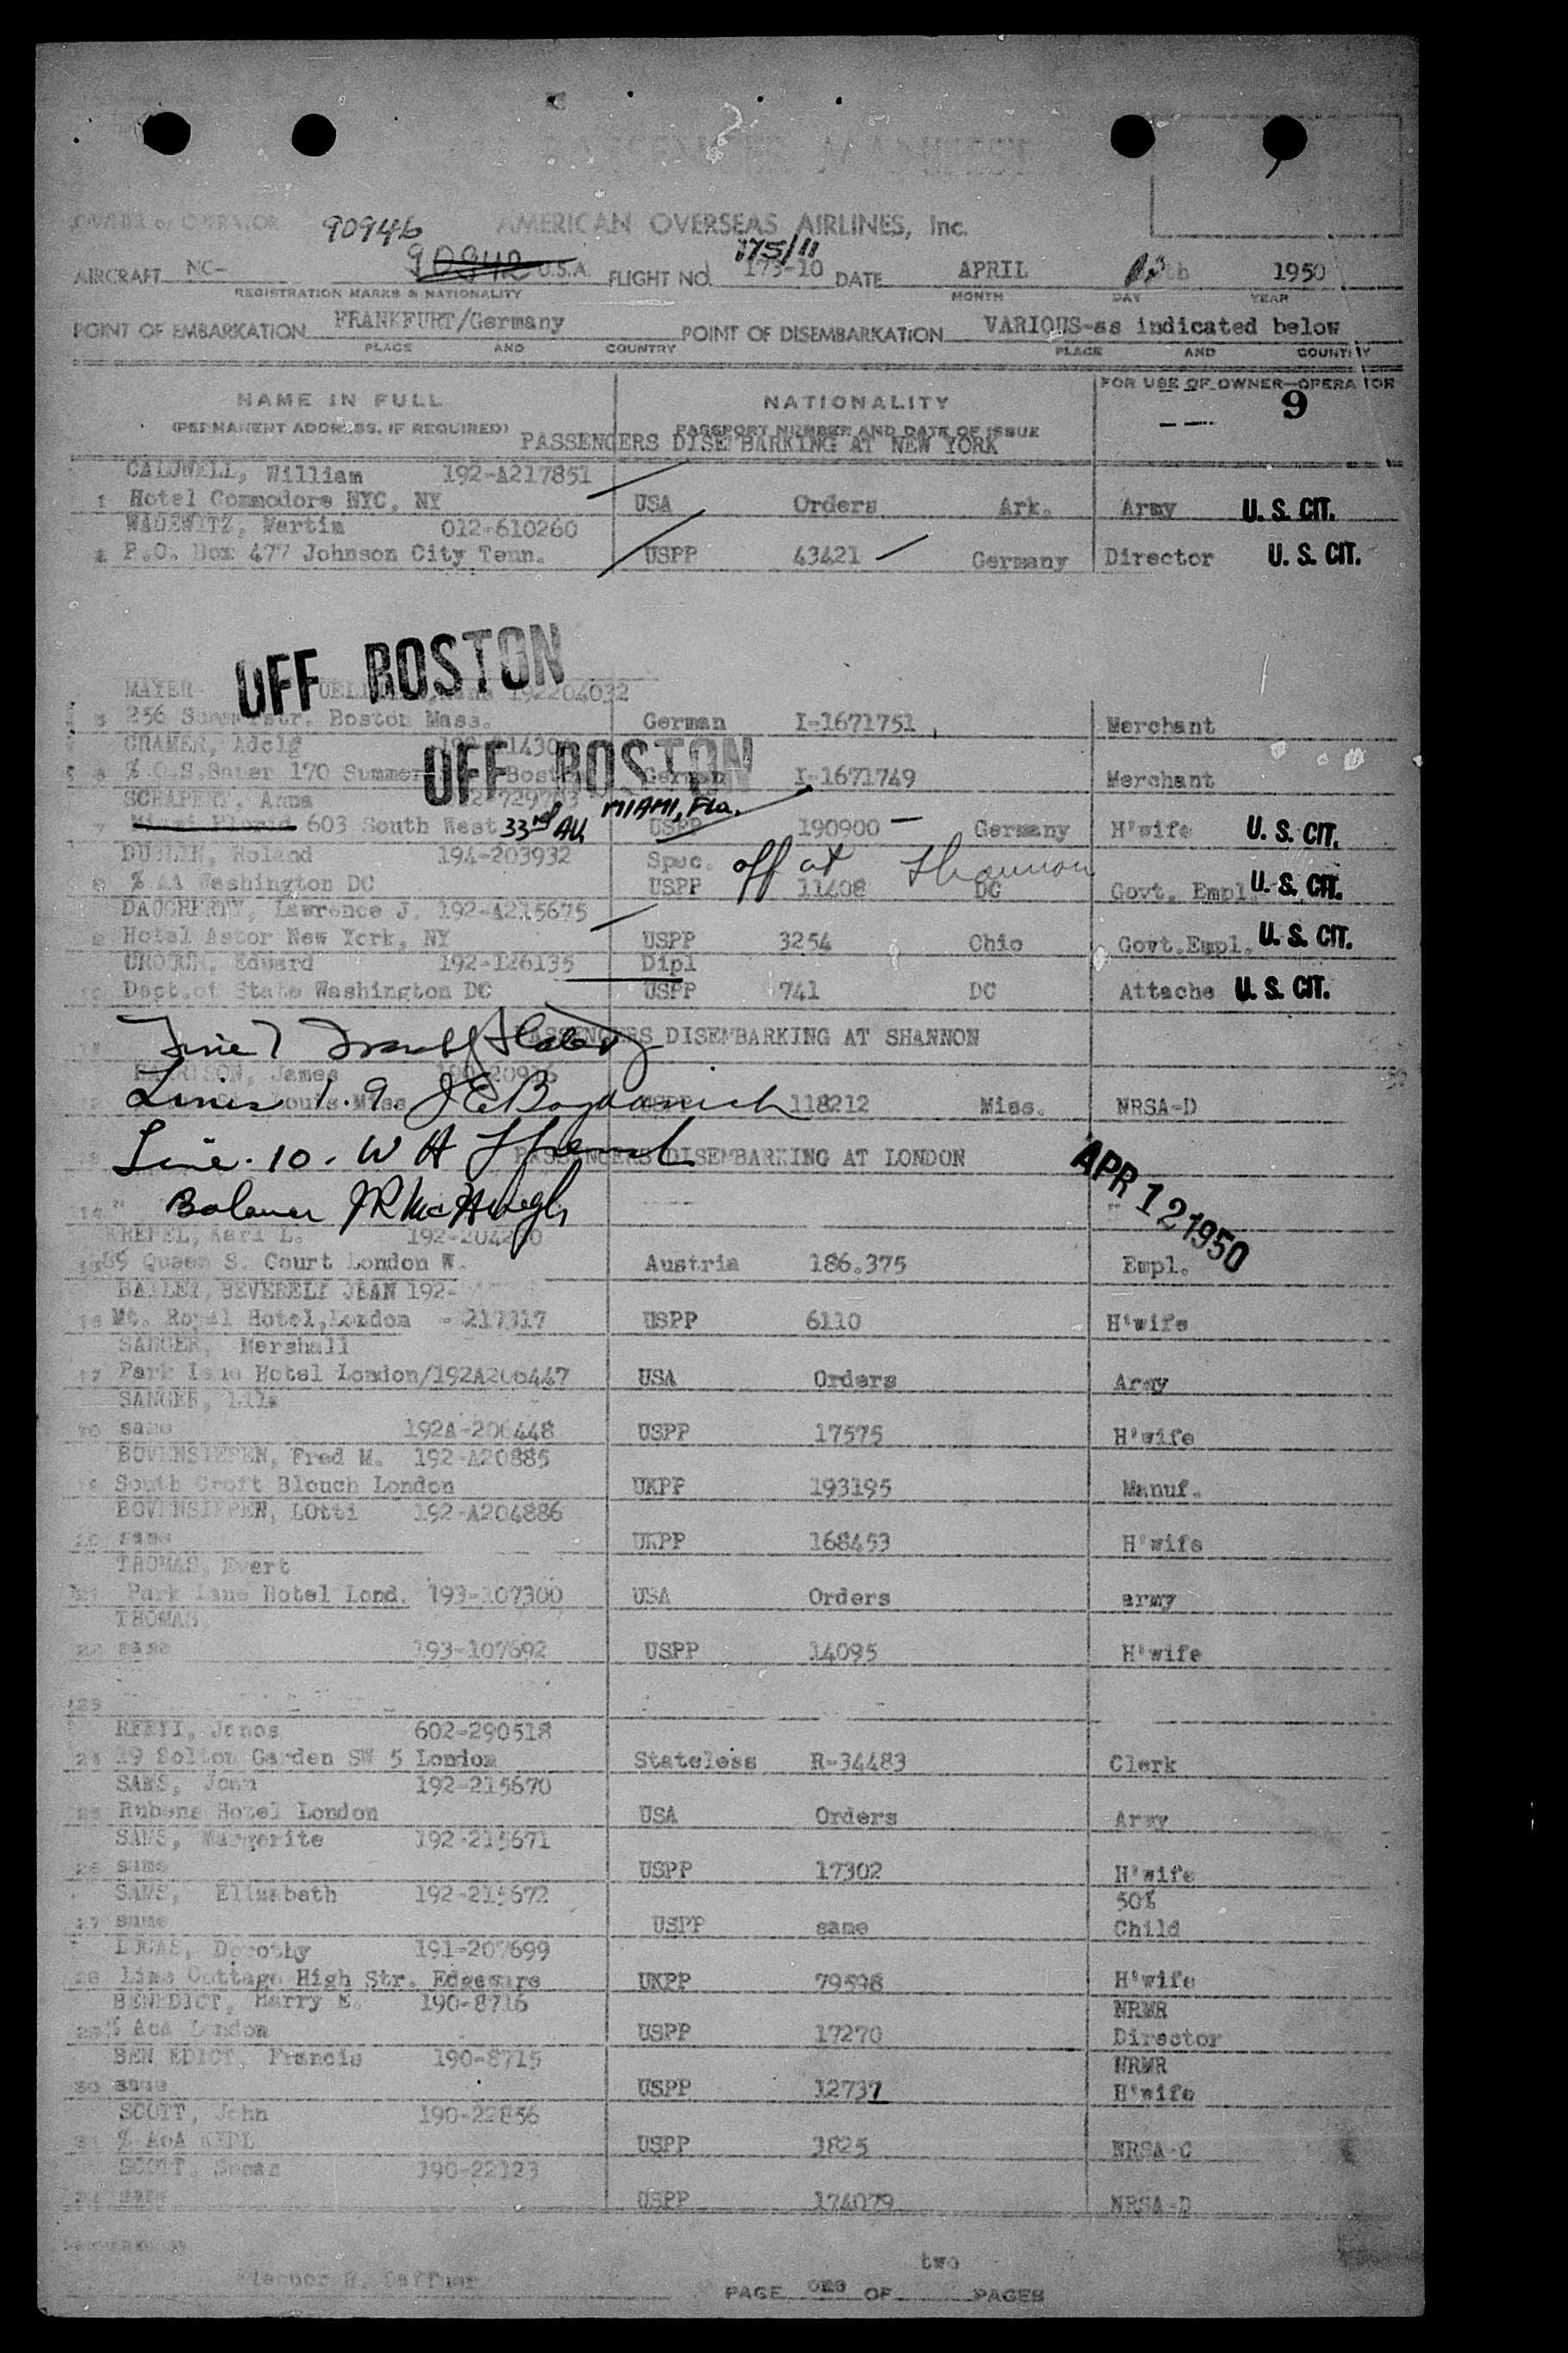 PASSENGER MANIFEST
OWNER or OPERATOR AMERICAN OVERSEAS AIRLINES, Inc.
90946
AIRCRAFT NC- 90942 U.S.A. FLIGHT NO. 175-10 175/11 DATE APRIL 1950
REGISTRATION MARKS & NATIONALITY MONTH DAY YEAR
POINT OF EMBARKATION FRANKFURT/Germany POINT OF DISEMBARKATION VARIOUS-as indicated below
PLACE AND COUNTRY PLACE AND COUNTRY
NAME IN FULL NATIONALITY FOR USE OF OWNER-OPERATOR
(PERMANENT ADDRESS, IF REQUIRED) PASSPORT NUMBER AND DATE OF ISSUE 9
PASSENGERS DISEMBARKING AT NEW YORK
CALDWELL, William 192-A217851
1 Hotel Commodore NYC, NY USA Orders Ark. Army U. S. CIT.
WADEWITZ, Martin 012-610260
2 P.O. Box 477 Johnson City Tenn. USPP 43421 Germany Director U. S. CIT.
OFF BOSTON
MAYER 192204032
5 256 Boston Mass. German I-1671751 Merchant
CRAMER, Adolf
OFF BOSTON
6 % O.S.Bauer 170 Summer Boston German I-1671749 Merchant
Anna MIAMI, Fla.
7 Miami Florid 603 South West 33rd AV USPP 190900 Germany H'wife U. S. CIT.
DUBLIN, Roland 194-203932 Spec. off at Shannon
8 % AA Washington DC USPP 11408 DC Govt. Empl. U. S. CIT.
DAUGHERTY, Lawrence J. 192-A215675
9 Hotel Astor New York, NY USPP 3254 Ohio Govt.Empl. U. S. CIT.
Edward 192-126135 Dipl
10 Dept.of State Washington DC USPP 741 DC Attache U. S. CIT.
PASSENGERS DISEMBARKING AT SHANNON
Line 7
HARRISON, James
Louis Miss 118212 Miss. NRSA-D
Lines 1.9. J E Bogdanich
PASSENGERS DISEMBARKING AT LONDON
Line. 10. W H
APR 12 1950
14
Balance J R McHugh
KREPEL, Karl L.
15 85 Queen S. Court London W. Austria 186.375 Empl.
BAILEY, BEVERELY JEAN 192-
16 Mt. Royal Hotel,London - 217317 USPP 6110 H'wife
SANGER, Marshall
17 Park Lane Hotel London/192A206447 USA Orders Army
SANGER, Lila
18 same 192A-206448 USPP 17575 H'wife
BOVENSIEPEN, Fred M. 192-A20885
19 South Croft Blouch London UKPP 193195 Manuf.
BOVENSIEPEN, LOtti 192-A204886
20 same UKPP 168453 H'wife
THOMAS, Evert
21 Park Lane Hotel Lond. 193-107300 USA Orders army
THOMAS,
22 same 193-107692 USPP 14095 H'wife
23
Janos 602-290518
24 29 Bolton Garden SW 5 London Stateless R-34483 Clerk
SAMS, John 192-215670
25 Rubens Hotel London USA Orders Army
SAMS, Margerite 192-215671
26 same USPP 17302 H'wife
SAMS, Elizabeth 192-215672 50%
27 same USPP same Child
LUCAS, Dorothy 191-207699
28 Lime Cottage High Str. Edgeware UKPP 79598 H'wife
BENEDICT, Harry E. 190-8716 NRMR
29 % AoA London USPP 17270 Director
BEN EDICT, Francis 190-8715 NRMR
30 same USPP 12737 H'wife
SCOTT, John 190-22856
31 % AoA USPP 3825 NRSA-C
SCOTT, Susan 190-22123
32 same USPP 174079 NRSA-D
Eleanor H.
two
PAGE one OF PAGES